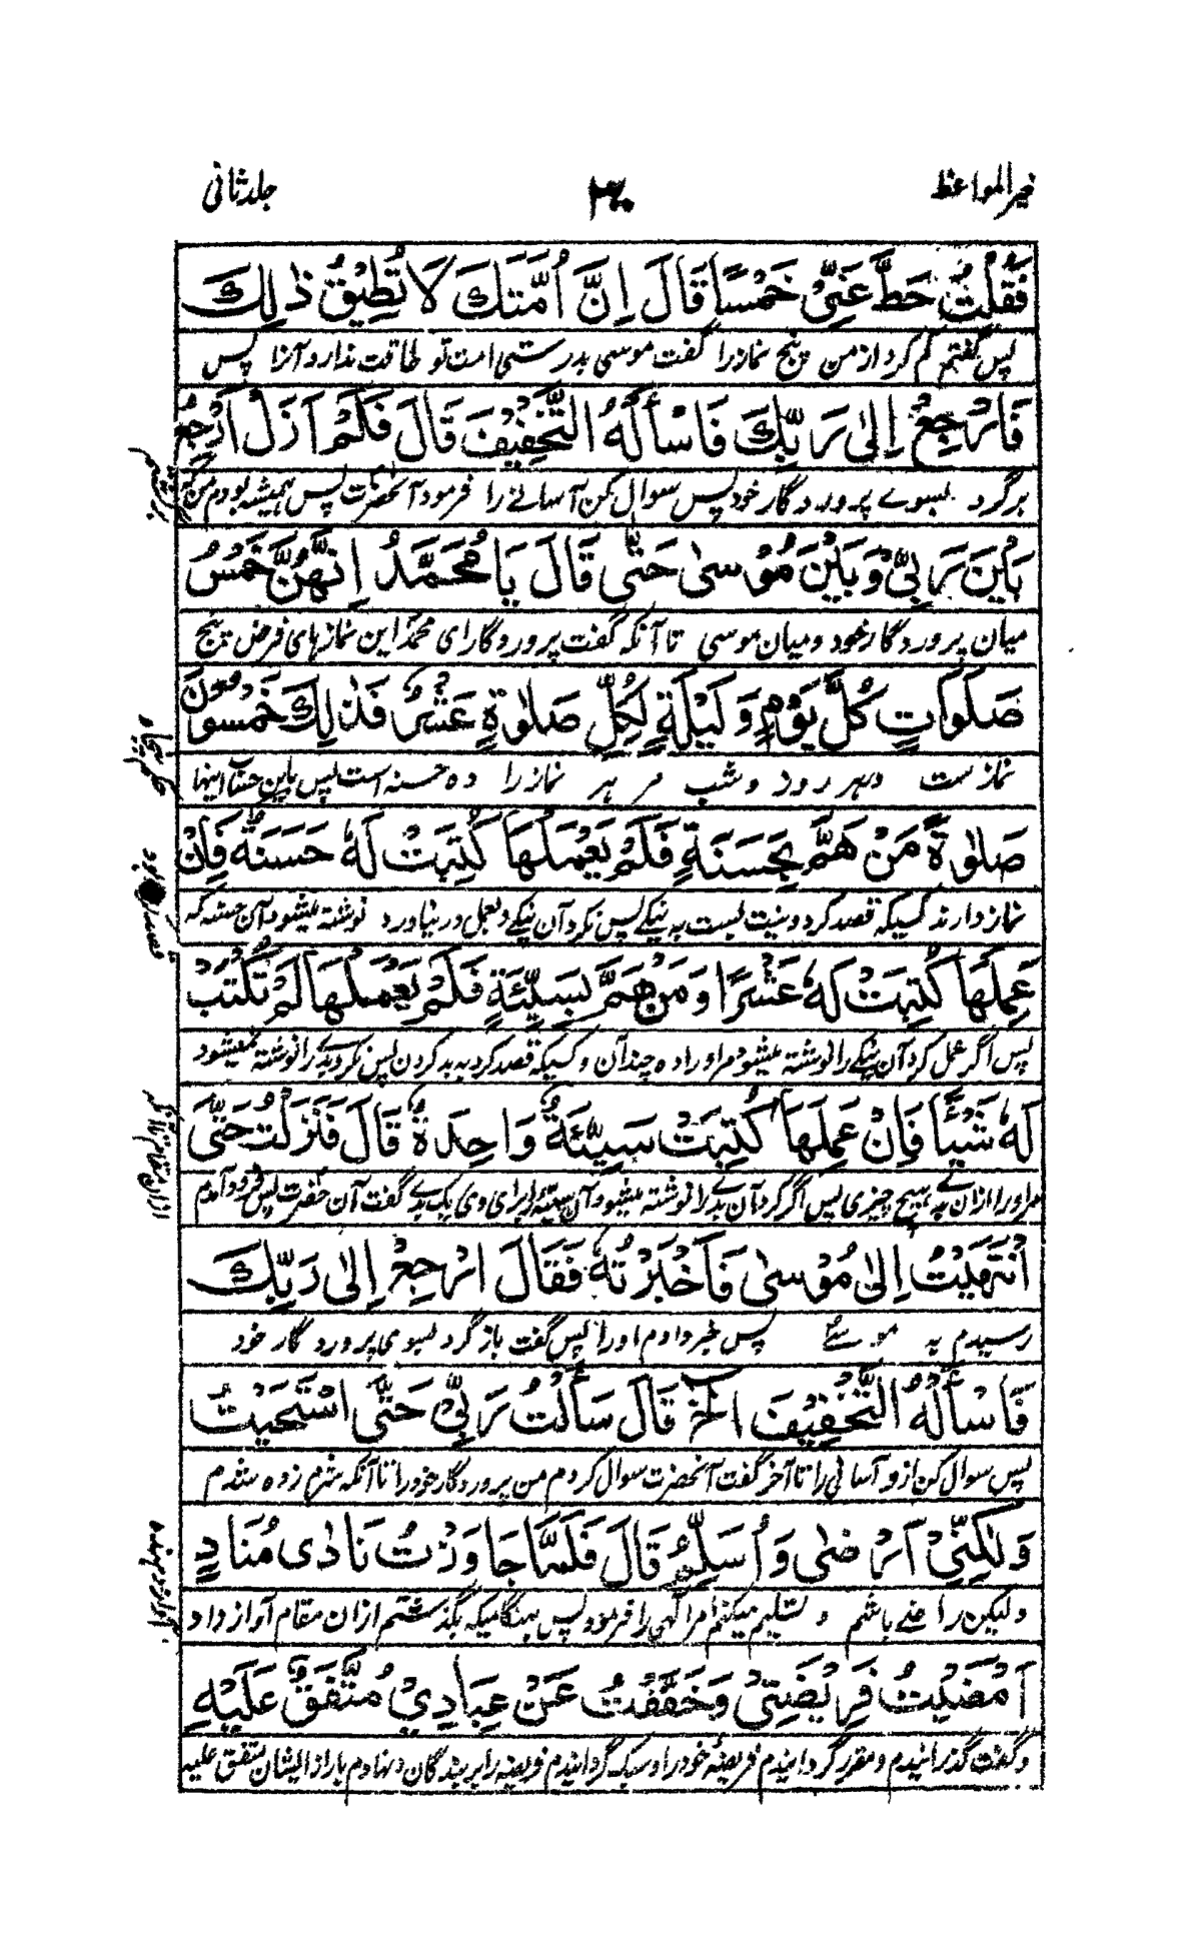 خیر المواعظ
۳۰
جلد ثانی
فَقُلْتُ حَطَّ عَنِّیْ خَمْسًا قَالَ اِنَّ اُمَّتَكَ لَا تُطِیْقُ ذٰلِكَ
پس گفتم کم کرد از من پنج نماز را گفت موسی بدرستی امت تو طاقت ندارد آنرا پس
فَارْجِعْ اِلٰی رَبِّكَ فَاسْأَلْهُ التَّخْفِیْفَ قَالَ فَلَمْ اَزَلْ اَرْجِعُ
برگرد بسوے پروردگار خود پس سوال کن آسانے را فرمود آنحضرت پس همیشه بودم من که
بَیْنَ رَبِّیْ وَبَیْنَ مُوْسٰی حَتّٰی قَالَ یَا مُحَمَّدُ اِنَّهُنَّ خَمْسُ
میان پروردگار خود و میان موسی تا آنکه گفت پروردگار ای محمد این نمازهای فرض پنج
صَلَوَاتٍ كُلَّ یَوْمٍ وَلَیْلَةٍ لِكُلِّ صَلٰوةٍ عَشْرٌ فَذٰلِكَ خَمْسُوْنَ
نماز ست در هر روز و شب مر هر نماز را ده حسنه است پس باین حساب اینها
صَلٰوةً مَنْ هَمَّ بِحَسَنَةٍ فَلَمْ یَعْمَلْهَا كُتِبَتْ لَهٗ حَسَنَةٌ فَاِنْ
نماز دارند کسیکه قصد کرد و نیت بست به نیکے پس نکرد آن نیکے و بعمل در نیاورد نوشته میشود آن حسنه که
عَمِلَهَا كُتِبَتْ لَهٗ عَشْرًا وَمَنْ هَمَّ بِسَیِّئَةٍ فَلَمْ یَعْمَلْهَا لَمْ تُكْتَبْ
پس اگر عمل کرد آن نیکے را نوشته میشود مر او را ده چند آن و کسیکه قصد کرد به بد کردن پس نکرد بد را نوشته نمیشود
لَهٗ شَیْئًا فَاِنْ عَمِلَهَا كُتِبَتْ سَیِّئَةٌ وَاحِدَةٌ قَالَ فَنَزَلْتُ حَتّٰی
مر او را ازان بد هیچ چیزی پس اگر کرد آن بد را نوشته میشود آن سیئه برای وی یک بدے گفت آن حضرت پس فرود آمدم
انْتَهَیْتُ اِلٰی مُوْسٰی فَاَخْبَرْتُهٗ فَقَالَ ارْجِعْ اِلٰی رَبِّكَ
رسیدم به موسے پس خبر دادم او را پس گفت باز گرد بسوی پروردگار خود
فَاسْأَلْهُ التَّخْفِیْفَ الخ قَالَ سَأَلْتُ رَبِّیْ حَتّٰی اسْتَحْیَیْتُ
پس سوال کن ازو آسانی را تا آخر گفت آنحضرت سوال کردم من پروردگار خود را تا آنکه شرم زده شدم
وَلٰكِنِّیْ اَرْضٰی وَاُسَلِّمُ قَالَ فَلَمَّا جَاوَزْتُ نَادٰی مُنَادٍ
ولیکن راضے باشم و تسلیم میکنم امر الهی را فرمود پس هنگامیکه بگذشتم ازان مقام آواز داد
اَمْضَیْتُ فَرِیْضَتِیْ وَخَفَّفْتُ عَنْ عِبَادِیْ مُتَّفَقٌ عَلَیْهِ
و گفت گذرانیدم و مقرر گردانیدم فریضهٔ خود را و سبک گردانیدم فریضه را بر بندگان و نهادم بار از ایشان متفق علیه